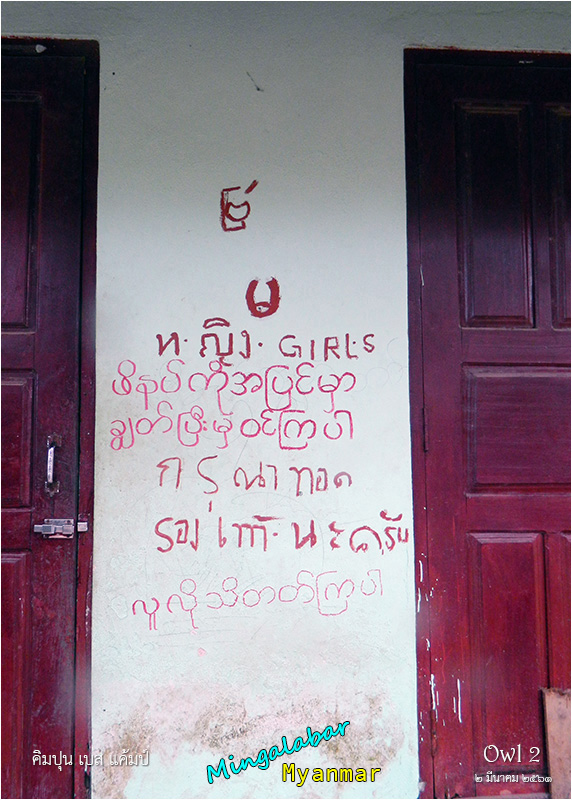 မ
ห.ญิง. GIRLS
ဖိနပ်ကိုအပြင်မှာ
ချွတ်ပြီးမှဝင်ကြပါ
กรุณาทอด
รองเท้า.นะครับ
လူလိုသိတတ်ကြပါ
Mingalabar
Myanmar
คิมปุน เบส แค้มป์
Owl 2
๒ มีนาคม ๒๕๖๑